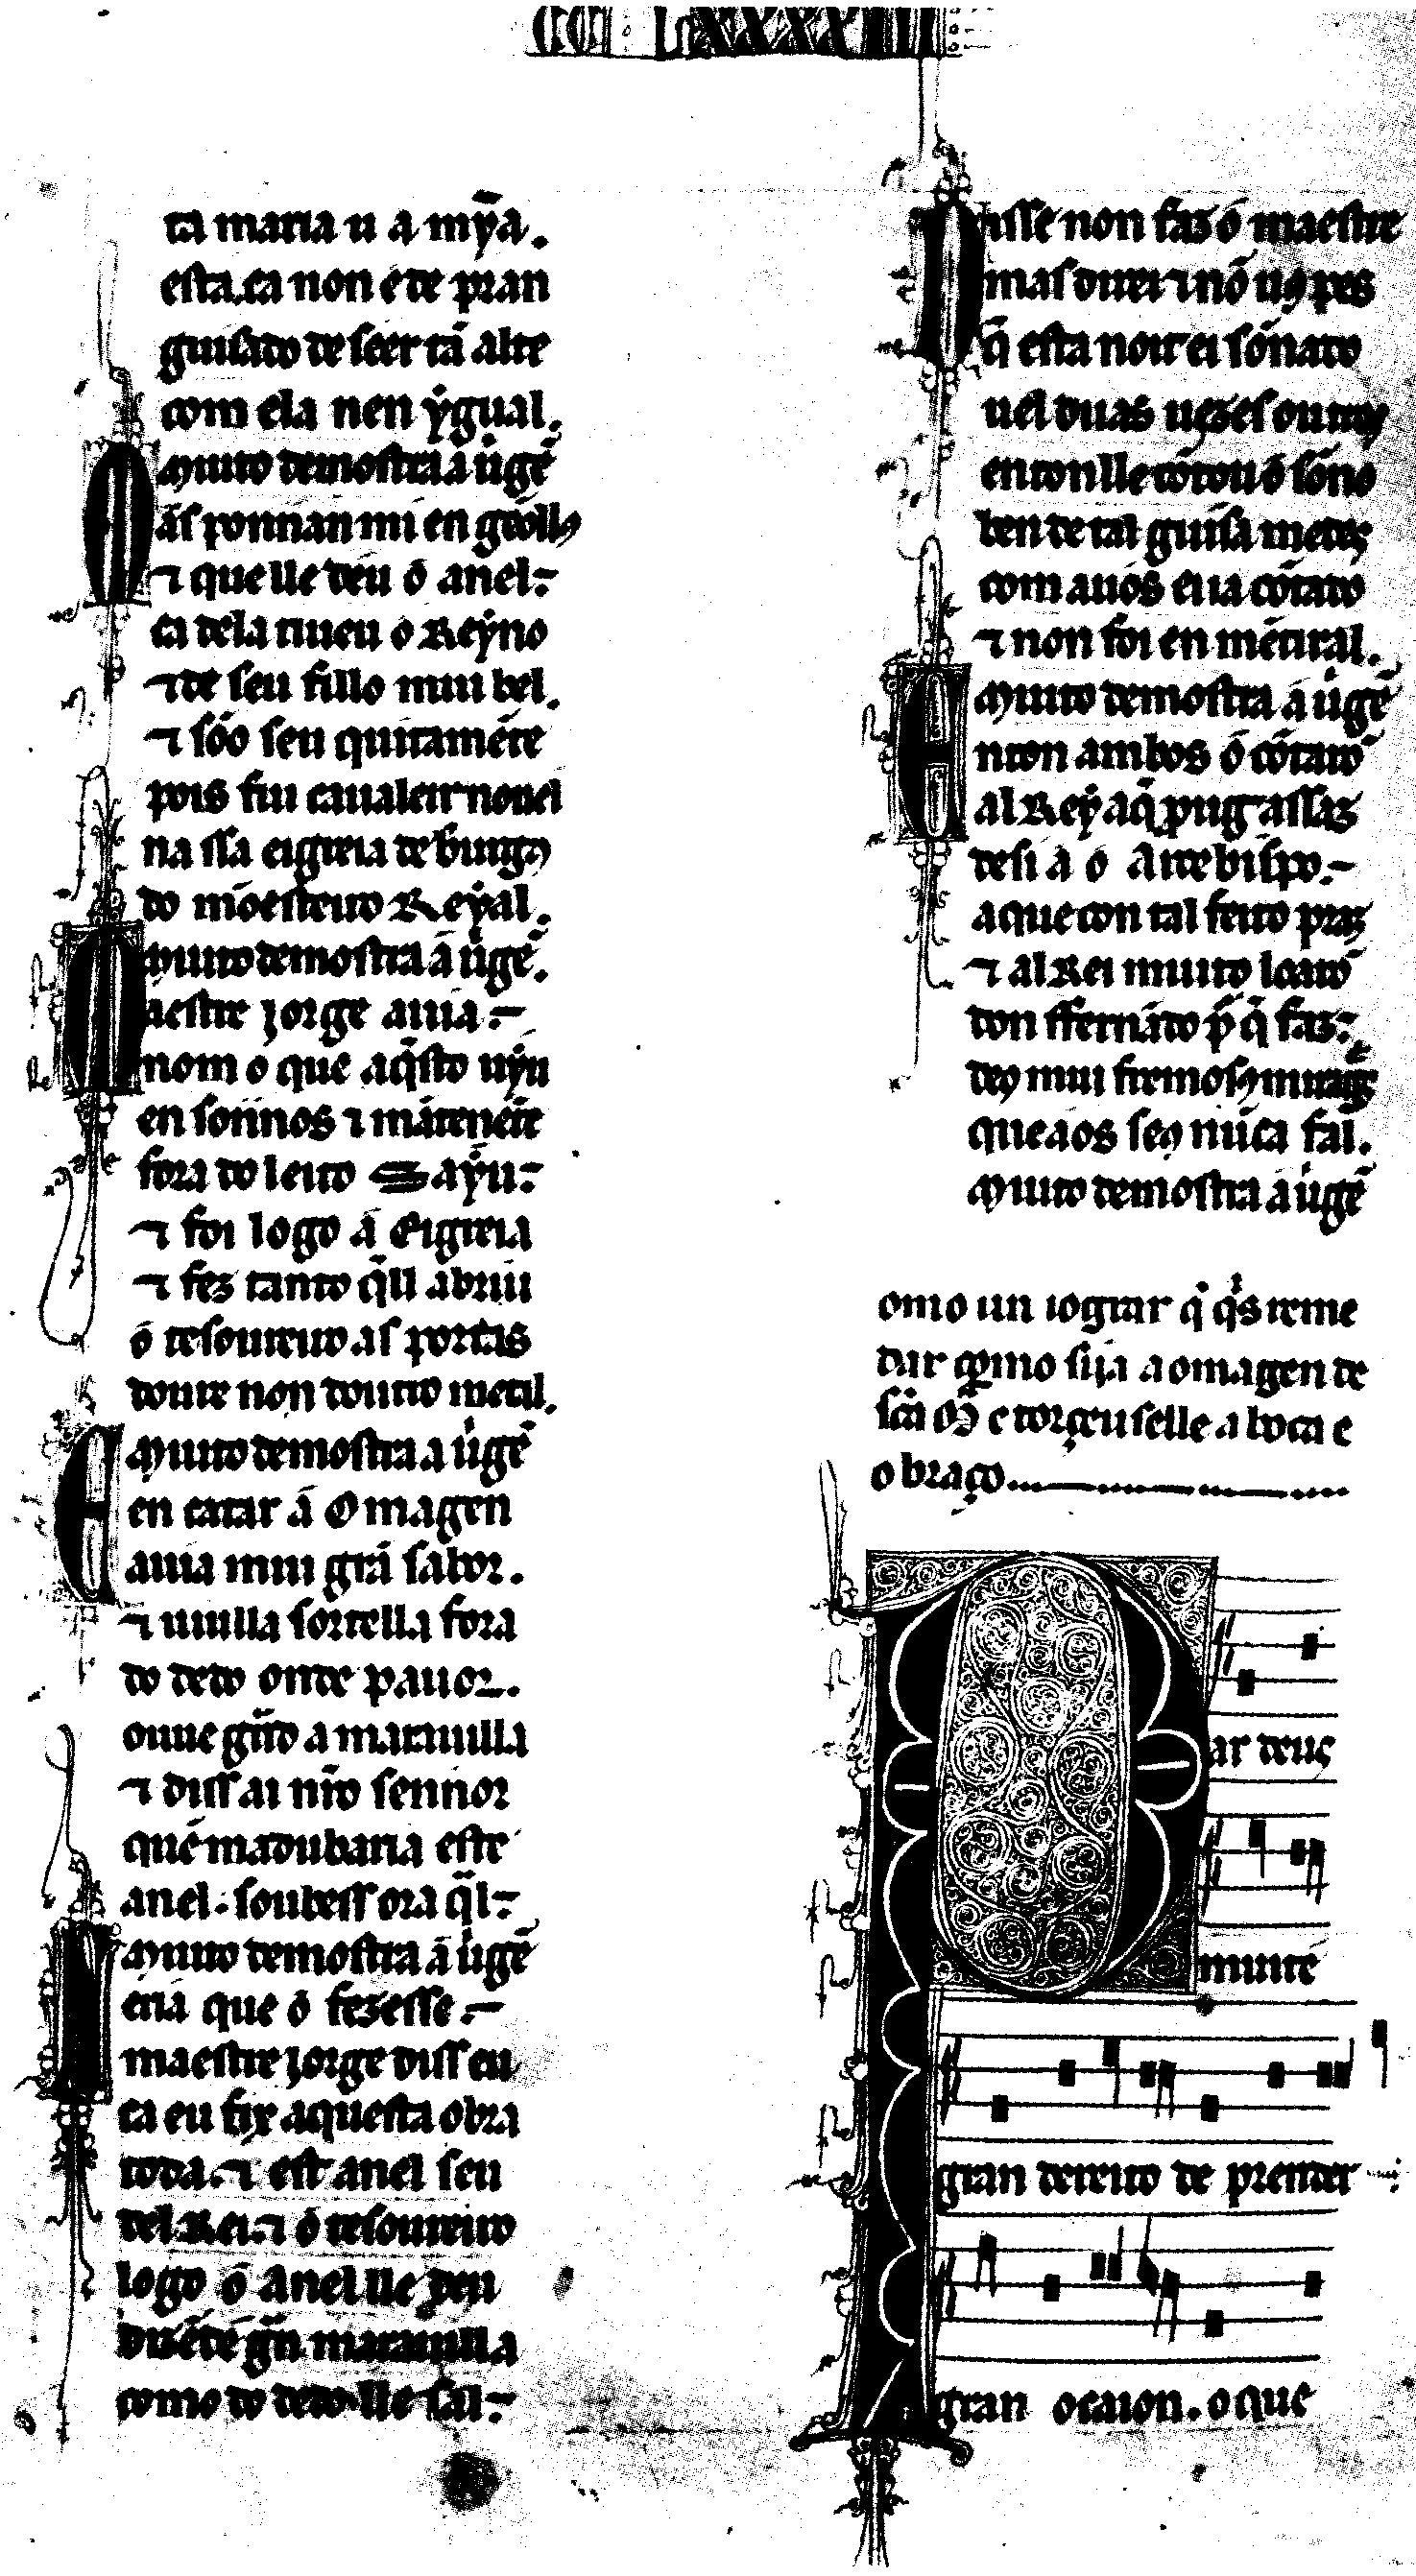 CCLXXXXIII
ta maria u a mỹa.
esta. ca non é de pran
guisado de seer tã alte
com ela nen ygual.
Muito demostra a uige᷈
Mas ponnan mi en geollos
⁊ que lle deu o anel:-
ca dela tiueu o Reyno
⁊ de seu fillo mui bel.
⁊ sõo seu quitamẽte
pois fui caualeir nouel
na ssa eigreia de burgos
do mõesteiro Reyal.
Muito demostra a uigẽ.
Maestre jorge auia:-
nom o que aq̃sto uyu
en sonnos ⁊ mãteneẽte
fora do leito sayu:-
⁊ foi logo á Eigreia
⁊ fez tanto q̃ ll abriu
o tesoureiro as portas
dou᷈re non douro metal.
Muito demostra a uigẽ
E en catar á Omagen
auia mui grã sabor.
⁊ uiulla sortella fora
do dedo onde pauor.
ouue grãd a marauilla
⁊ diss ai nr̃o sennor
quẽ m adubaria este
anel. soubess ora q̃l:-
Muito demostra a uigẽ
ẽria que o fezesse:-
maestre jorge diss eu
ca eu fix aquesta obra
toda. ⁊ est anel seu
del Rei. ⁊ o tesoureiro
logo o anel lle deu
dizẽde grã marauilla
como do dedo lle sal:-
Disse non faz o maestre
mas direi ⁊ nõ uos pes
q̃ esta noit ei sõnado
uel duas uezes ou tres
enton lle cõtou o sõno
ben de tal guisa medes
com a uos ei ia cõtado
⁊ non foi en mẽtiral.
Muito demostra a uigẽ
Enton ambos o cõtarõ
al Rey a q̃ proug assaz
desi a o Arcebispo:-
a que con tal feito praz
⁊ al Rei muito loarõ
don ffernãdo p̃ q̃ faz:-
deus mui fremosos miragres
que aos seus nũca fal.
Muito demostra a uigẽ
omo un iograr q̃ q̃s reme
dar como siia a omagen de
sc̃a M̃ e torçeu selle a boca e
o braço
Par deus
muit é
gran dereito de prender
gran ocaion. o que